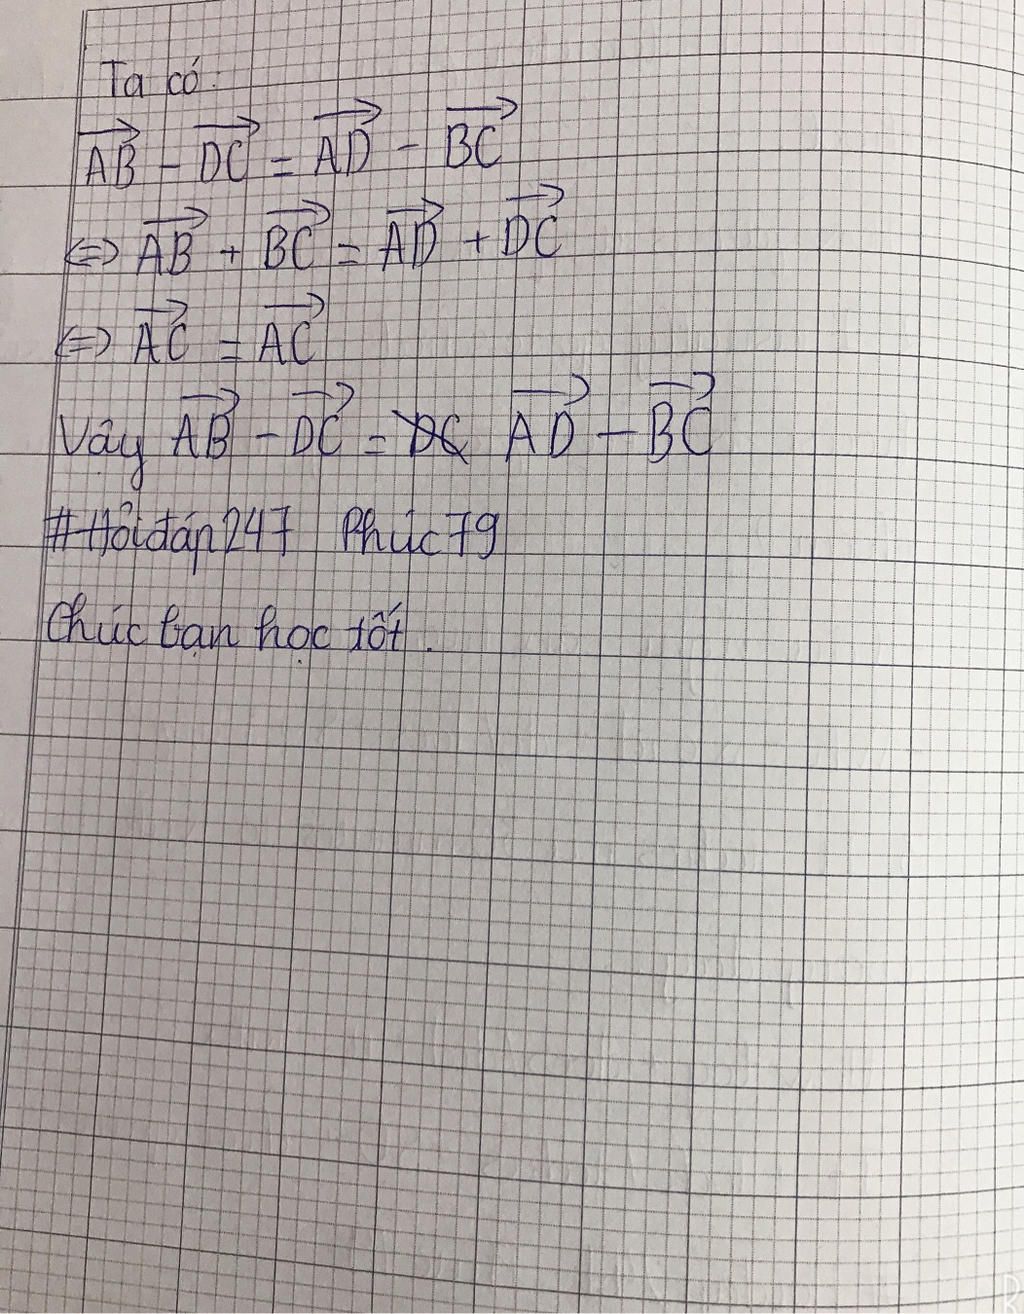 Ta có:
$\overrightarrow{AB} - \overrightarrow{DC} = \overrightarrow{AD} - \overrightarrow{BC}$
$\Leftrightarrow \overrightarrow{AB} + \overrightarrow{BC} = \overrightarrow{AD} + \overrightarrow{DC}$
$\Leftrightarrow \overrightarrow{AC} = \overrightarrow{AC}$
Vậy $\overrightarrow{AB} - \overrightarrow{DC} = \overrightarrow{AD} - \overrightarrow{BC}$
#Hỏiđáp247 Phúc79
Chúc bạn học tốt.